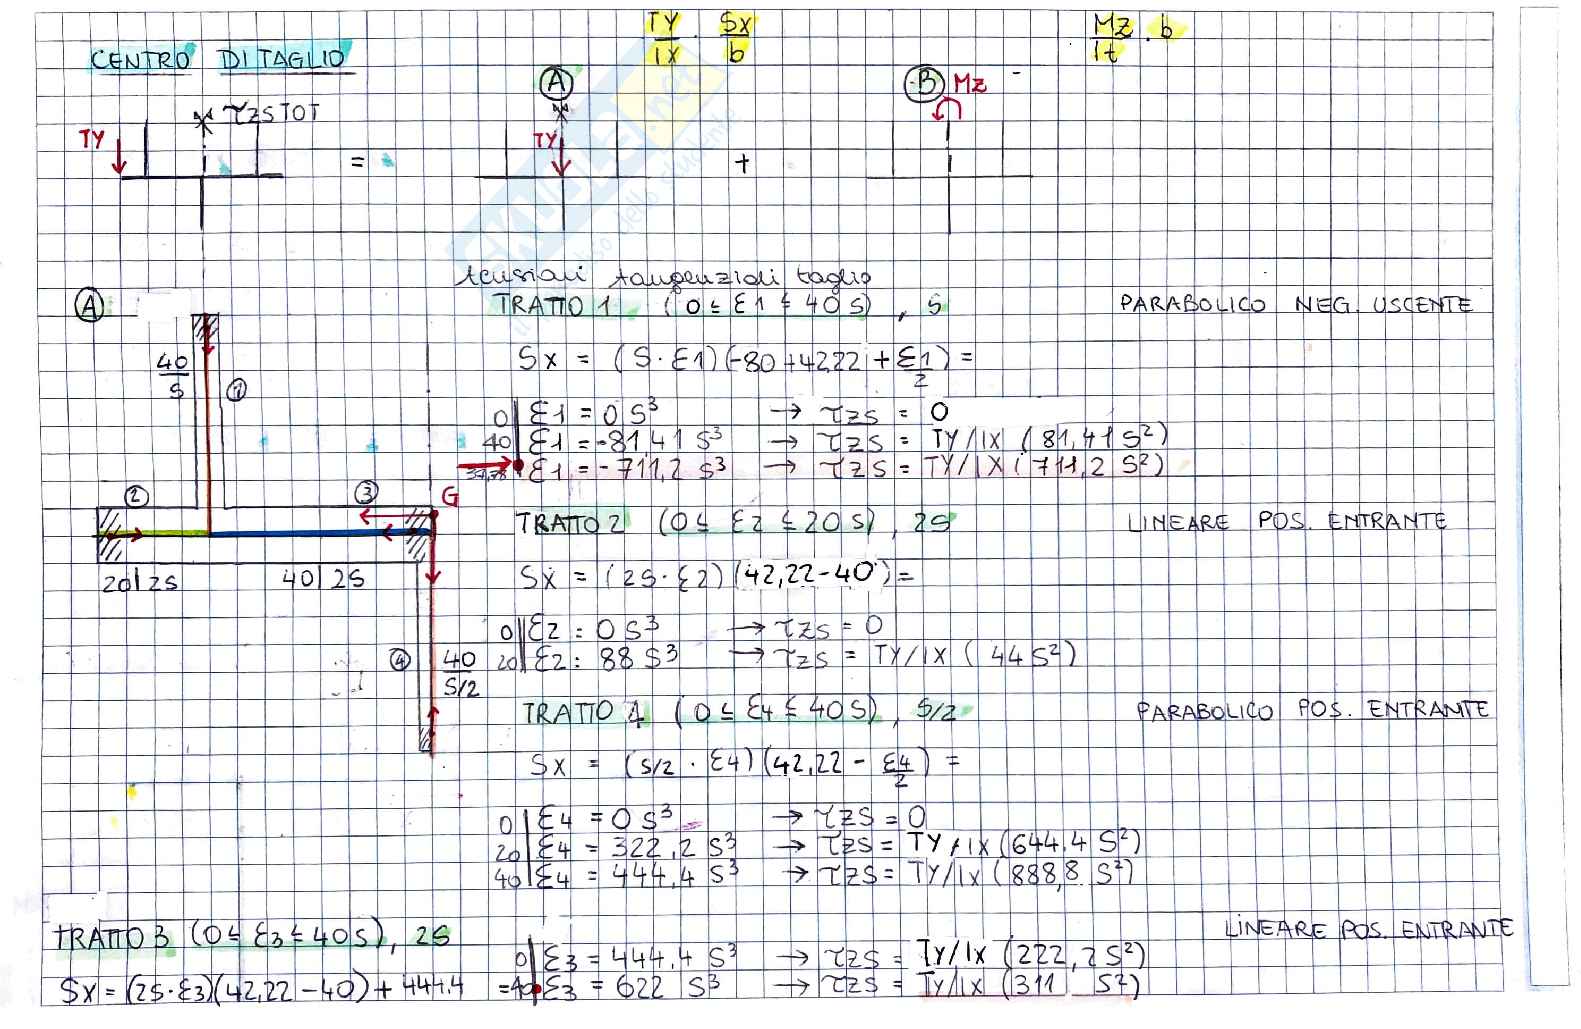 CENTRO DI TAGLIO
TY/IX · SX/b
MZ/It · b
A
B MZ
TY
τZS TOT
=
TY
+
tensioni tangenziali taglio
A
TRATTO 1 (0 ≤ ε1 ≤ 40 S), S
PARABOLICO NEG. USCENTE
SX = (S · ε1)(-80 + 42,22 + ε1/2) =
0 ε1 = 0 S³ → τZS = 0
40 ε1 = -81,41 S³ → τZS = TY/IX (81,41 S²)
ε1 = -711,2 S³ → τZS = TY/IX (711,2 S²)
40/S
1
2
3
G
TRATTO 2 (0 ≤ ε2 ≤ 20 S), 2S
LINEARE POS. ENTRANTE
20/2S
40/2S
SX = (2S · ε2)(42,22 - 40) =
0 ε2 : 0 S³ → τZS = 0
20 ε2 : 88 S³ → τZS = TY/IX (44 S²)
4
40
S/2
TRATTO 4 (0 ≤ ε4 ≤ 40 S), S/2
PARABOLICO POS. ENTRANTE
SX = (S/2 · ε4)(42,22 - ε4/2) =
0 ε4 = 0 S³ → τZS = 0
20 ε4 = 322,2 S³ → τZS = TY/IX (644,4 S²)
40 ε4 = 444,4 S³ → τZS = TY/IX (888,8 S²)
TRATTO 3 (0 ≤ ε3 ≤ 40 S), 2S
LINEARE POS. ENTRANTE
SX = (2S · ε3)(42,22 - 40) + 444,4 =
0 ε3 = 444,4 S³ → τZS = TY/IX (222,2 S²)
40 ε3 = 622 S³ → τZS = TY/IX (311 S²)